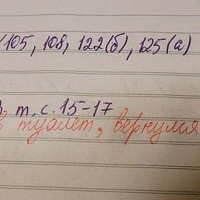 105, 108, 122(б), 125(а)
т. с. 15-17
в туалет, вернулся